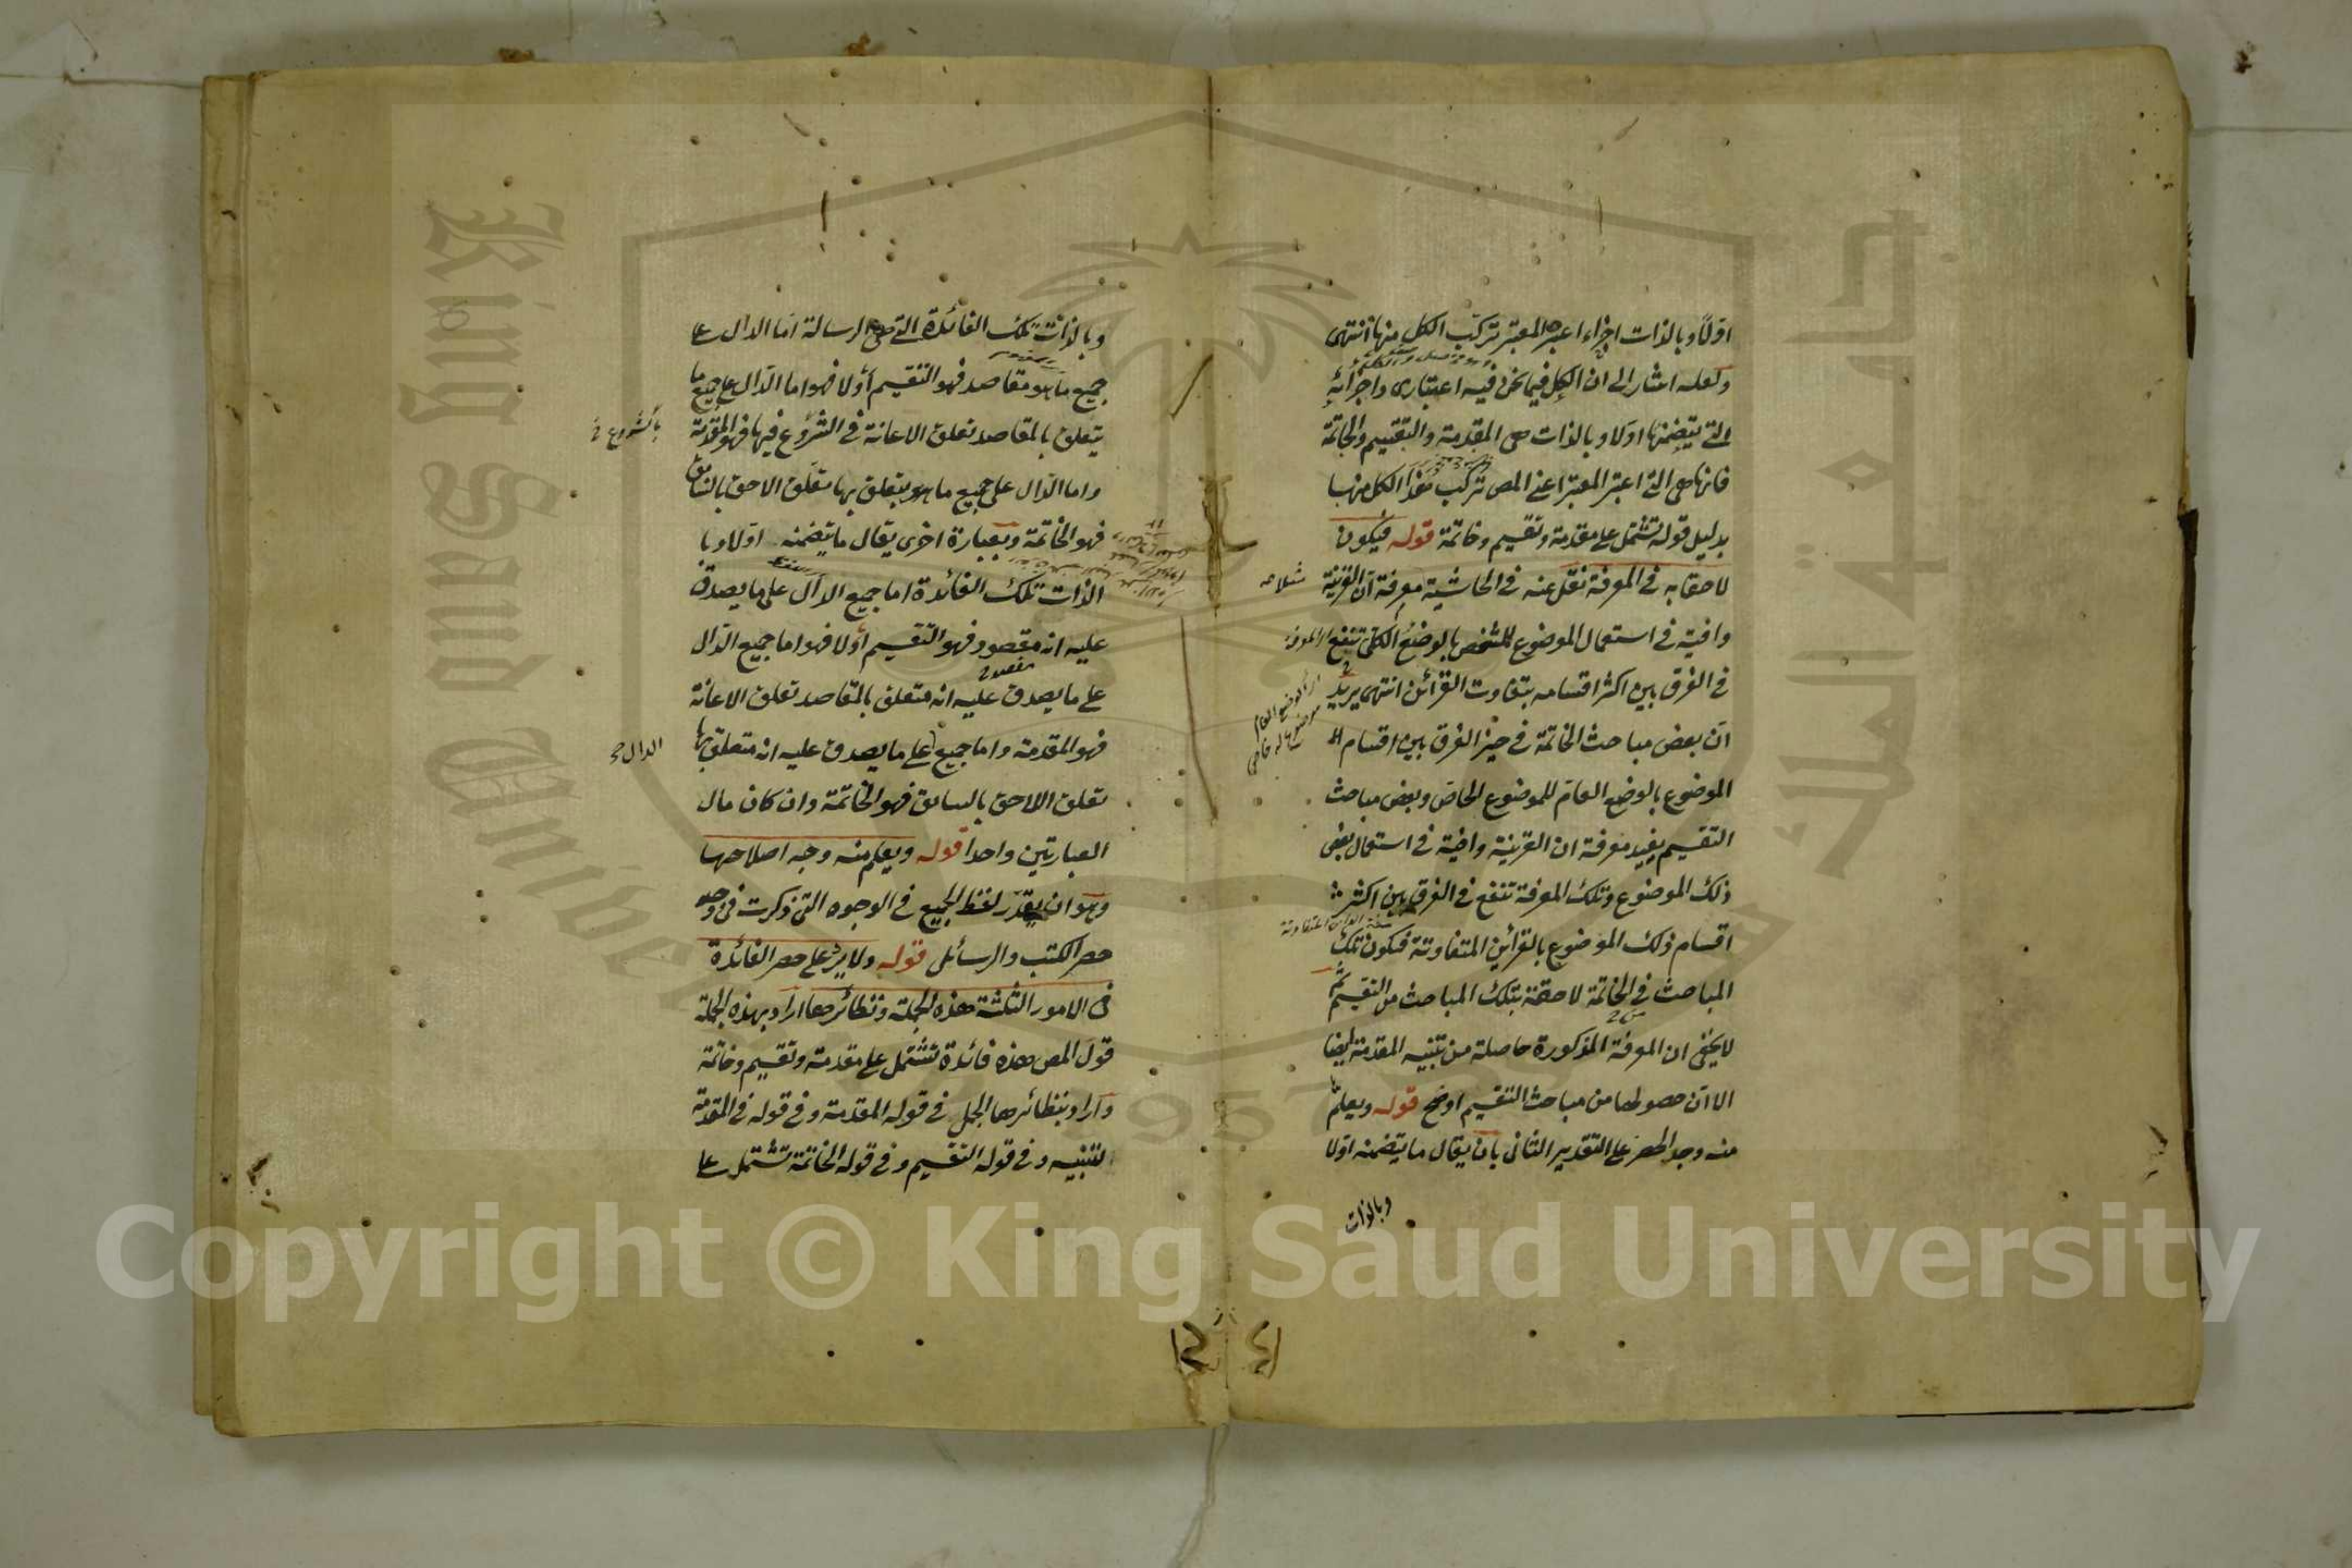 اولا وبالذات اجزاء اعبر المعبتر تركب الكل منها انتهى
ولعله اشار الى ان الكل فيما نحن فيه اعتبارى واجزائه
التى يتضمنها اولا وبالذات هى المقدمة والتقسيم والخاتمة
فانها هى التى اعتبر المعبتر اعنى المص تركب هذا الكل منها
بدليل قوله تشتمل على مقدمة وتقسيم وخاتمة قوله فيكون
لاحقا به فى المعرفة نقل عنه فى الحاشية معرفة ان القرينة
وافية فى استعمال الموضوع للمشخص بالوضع الكلى تنفع
فى الفرق بين اكثر اقسامه بتفاوت القرائن انتهى يريد
ان بعض مباحث الخاتمة فى حيز الفرق بين اقسام
الموضوع بالوضع العام للموضوع الخاص وبعض مباحث
التقسيم يفيد معرفة ان القرينة وافية فى استعمال بعض
ذلك الموضوع وتلك المعرفة تنفع فى الفرق بين اكثر
اقسام ذلك الموضوع بالقرائن المتفاوتة فتكون تلك
المباحث فى الخاتمة لاحقة بتلك المباحث من التقسيم ثم
لا يخفى ان المعرفة المذكورة حاصلة من تنبيه المقدمة ايضا
الا ان حصولها من مباحث التقسيم اوضح قوله ويعلم
منه وجه الحصر على التقدير الثانى بان يقال ما يتضمنه اولا
وبالذات
وبالذات تلك الفائدة التى هى الرسالة اما الدال على
جميع ما هو مقاصد فهو التقسيم أولا فهو اما الدال على جميع ما
يتعلق بالمقاصد تعلق الاعانة فى الشروع فيها فهو المقدمة
بالشروع
واما الدال على جميع ما هو يتعلق بها تعلق الاحق بالسابق
فهو الخاتمة وبعبارة اخرى يقال ما يتضمنه اولا وبا
الذات تلك الفائدة اما جميع الدال على ما يصدق
عليه انه مقصود فهو التقسيم أولا فهو اما جميع الدال
على ما يصدق عليه انه متعلق بالمقاصد تعلق الاعانة
فهو المقدمة واما جميع على ما يصدق عليه انه متعلق بها
الدال
تعلق اللاحق بالسابق فهو الخاتمة وان كان مال
العبارتين واحدا قوله ويعلم منه وجه اصلاحها
وهو ان يقدر لفظ الجميع فى الوجوه التى ذكرت فى وجه
حصر الكتب والرسائل قوله ولا يرد على حصر الفائدة
فى الامور الثلثة هذه الجملة ونظائرها اراد بهذه الجملة
قول المص هذه فائدة تشتمل على مقدمة وتقسيم وخاتمة
واراد بنظائرها الجمل فى قوله المقدمة وفى قوله فى المقدمة
لتنبيه وفى قوله التقسيم وفى قوله الخاتمة تشتمل على
King Saud University
جامعة الملك
1957
Copyright © King Saud University